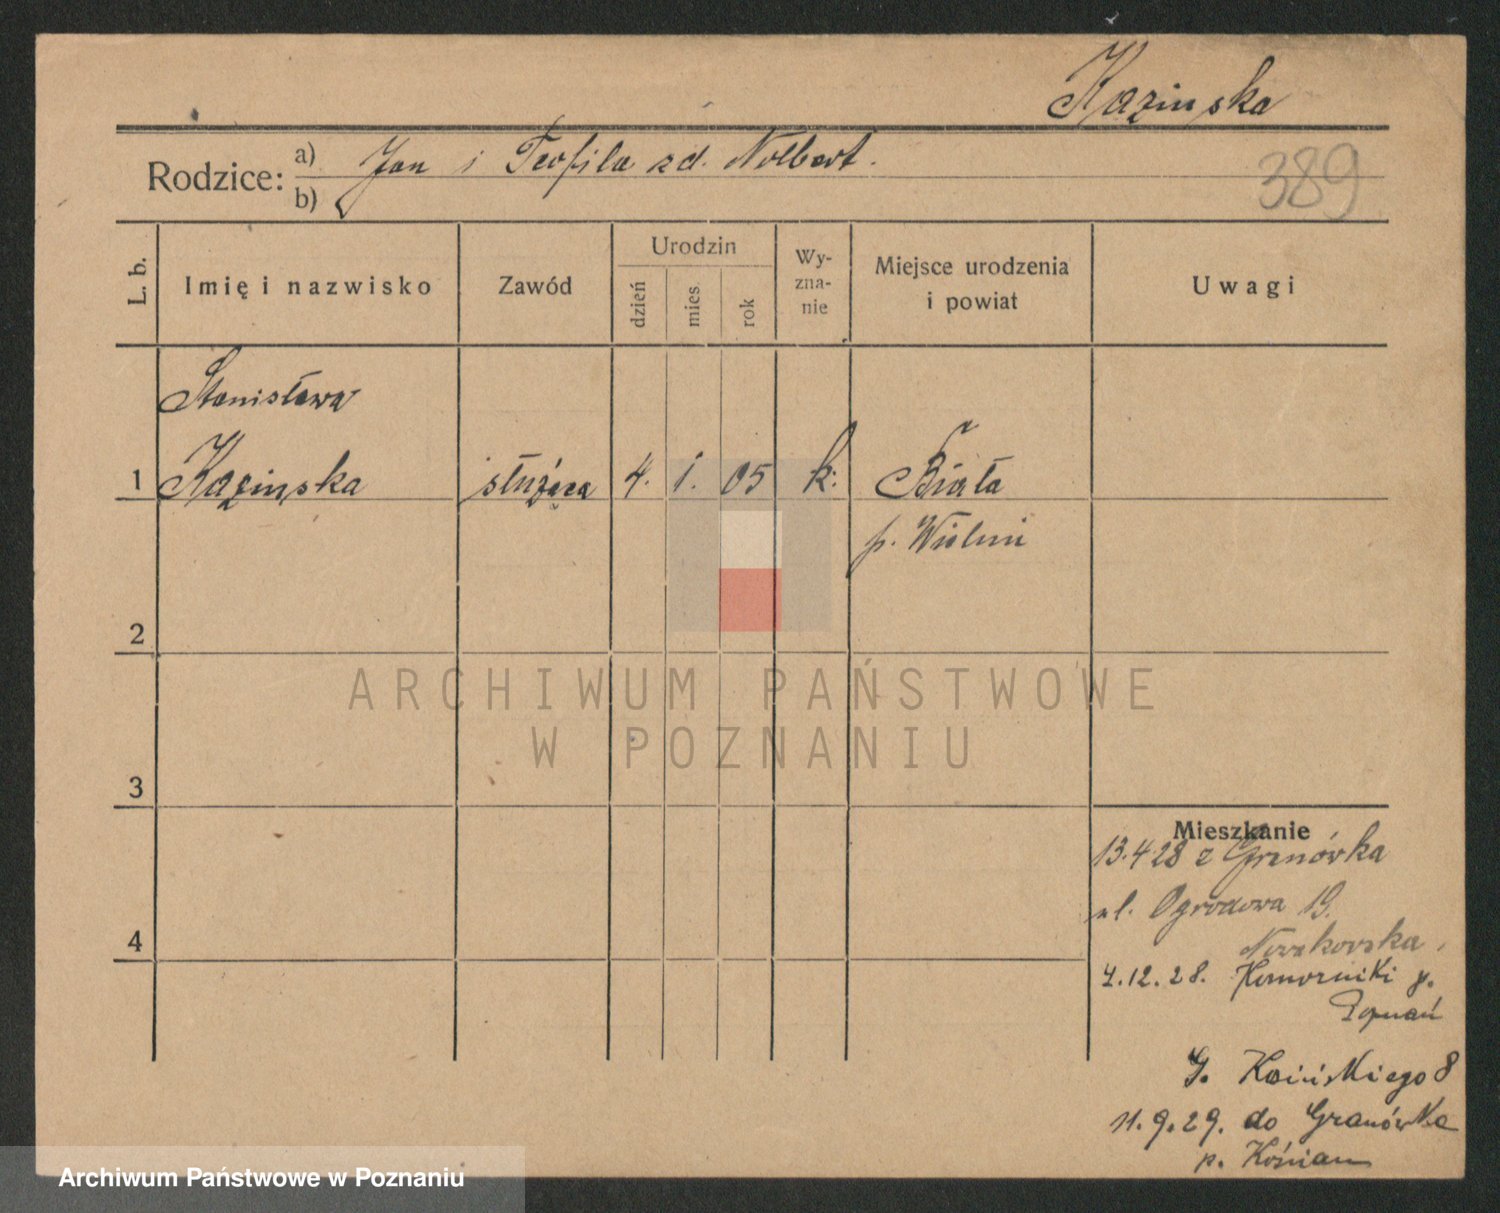 Kazinska
Rodzice: a) Jan i Teofila zd. Nolbert.
b)
389
L. b.
Imię i nazwisko
Zawód
Urodzin
dzień
mies.
rok
Wy-
zna-
nie
Miejsce urodzenia
i powiat
Uwagi
Stanisława
1 Kazinska służąca 4. 1. 05 k. Biała
p. Wieluń
2
3
4
Mieszkanie
13.4.28 z Granówka
ul. Ogrodowa 19.
4.12.28. Komorniki p.
Poznań
11.9.29. do Granówka
p. Kościan
ARCHIWUM PAŃSTWOWE
W POZNANIU
Archiwum Państwowe w Poznaniu